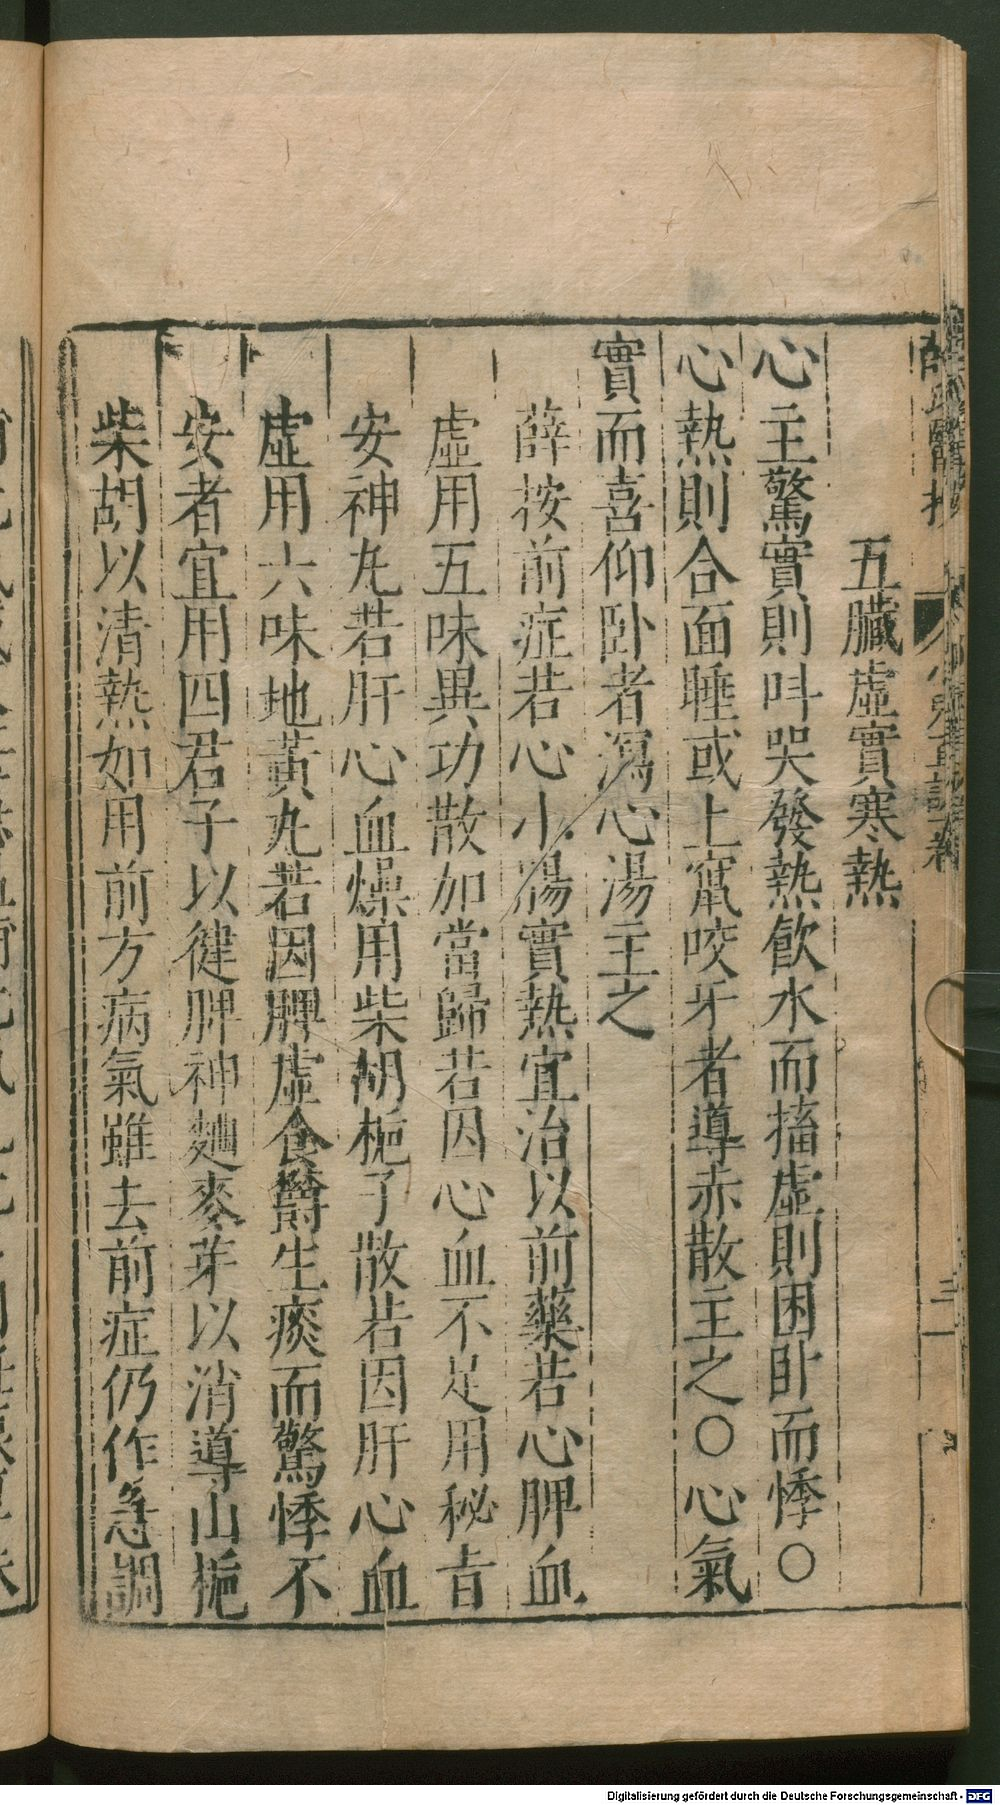 五臟虛實寒熱
心主驚實則呌哭發熱飲水而搐虛則困卧而悸○
心熱則合面睡或上竄咬牙者導赤散主之○心氣
實而喜仰卧者瀉心湯主之
薛按前症若心小腸實熱宜治以前藥若心脾血
虛用五味異功散加當歸若因心血不足用秘旨
安神丸若肝心血燥用柴胡梔子散若因肝心血
虛用六味地黃丸若因脾虛食欝生痰而驚悸不
安者宜用四君子以健脾神麯麥芽以消導山梔
柴胡以清熱如用前方病氣雖去前症仍作急調
Digitalisierung gefördert durch die Deutsche Forschungsgemeinschaft - DFG